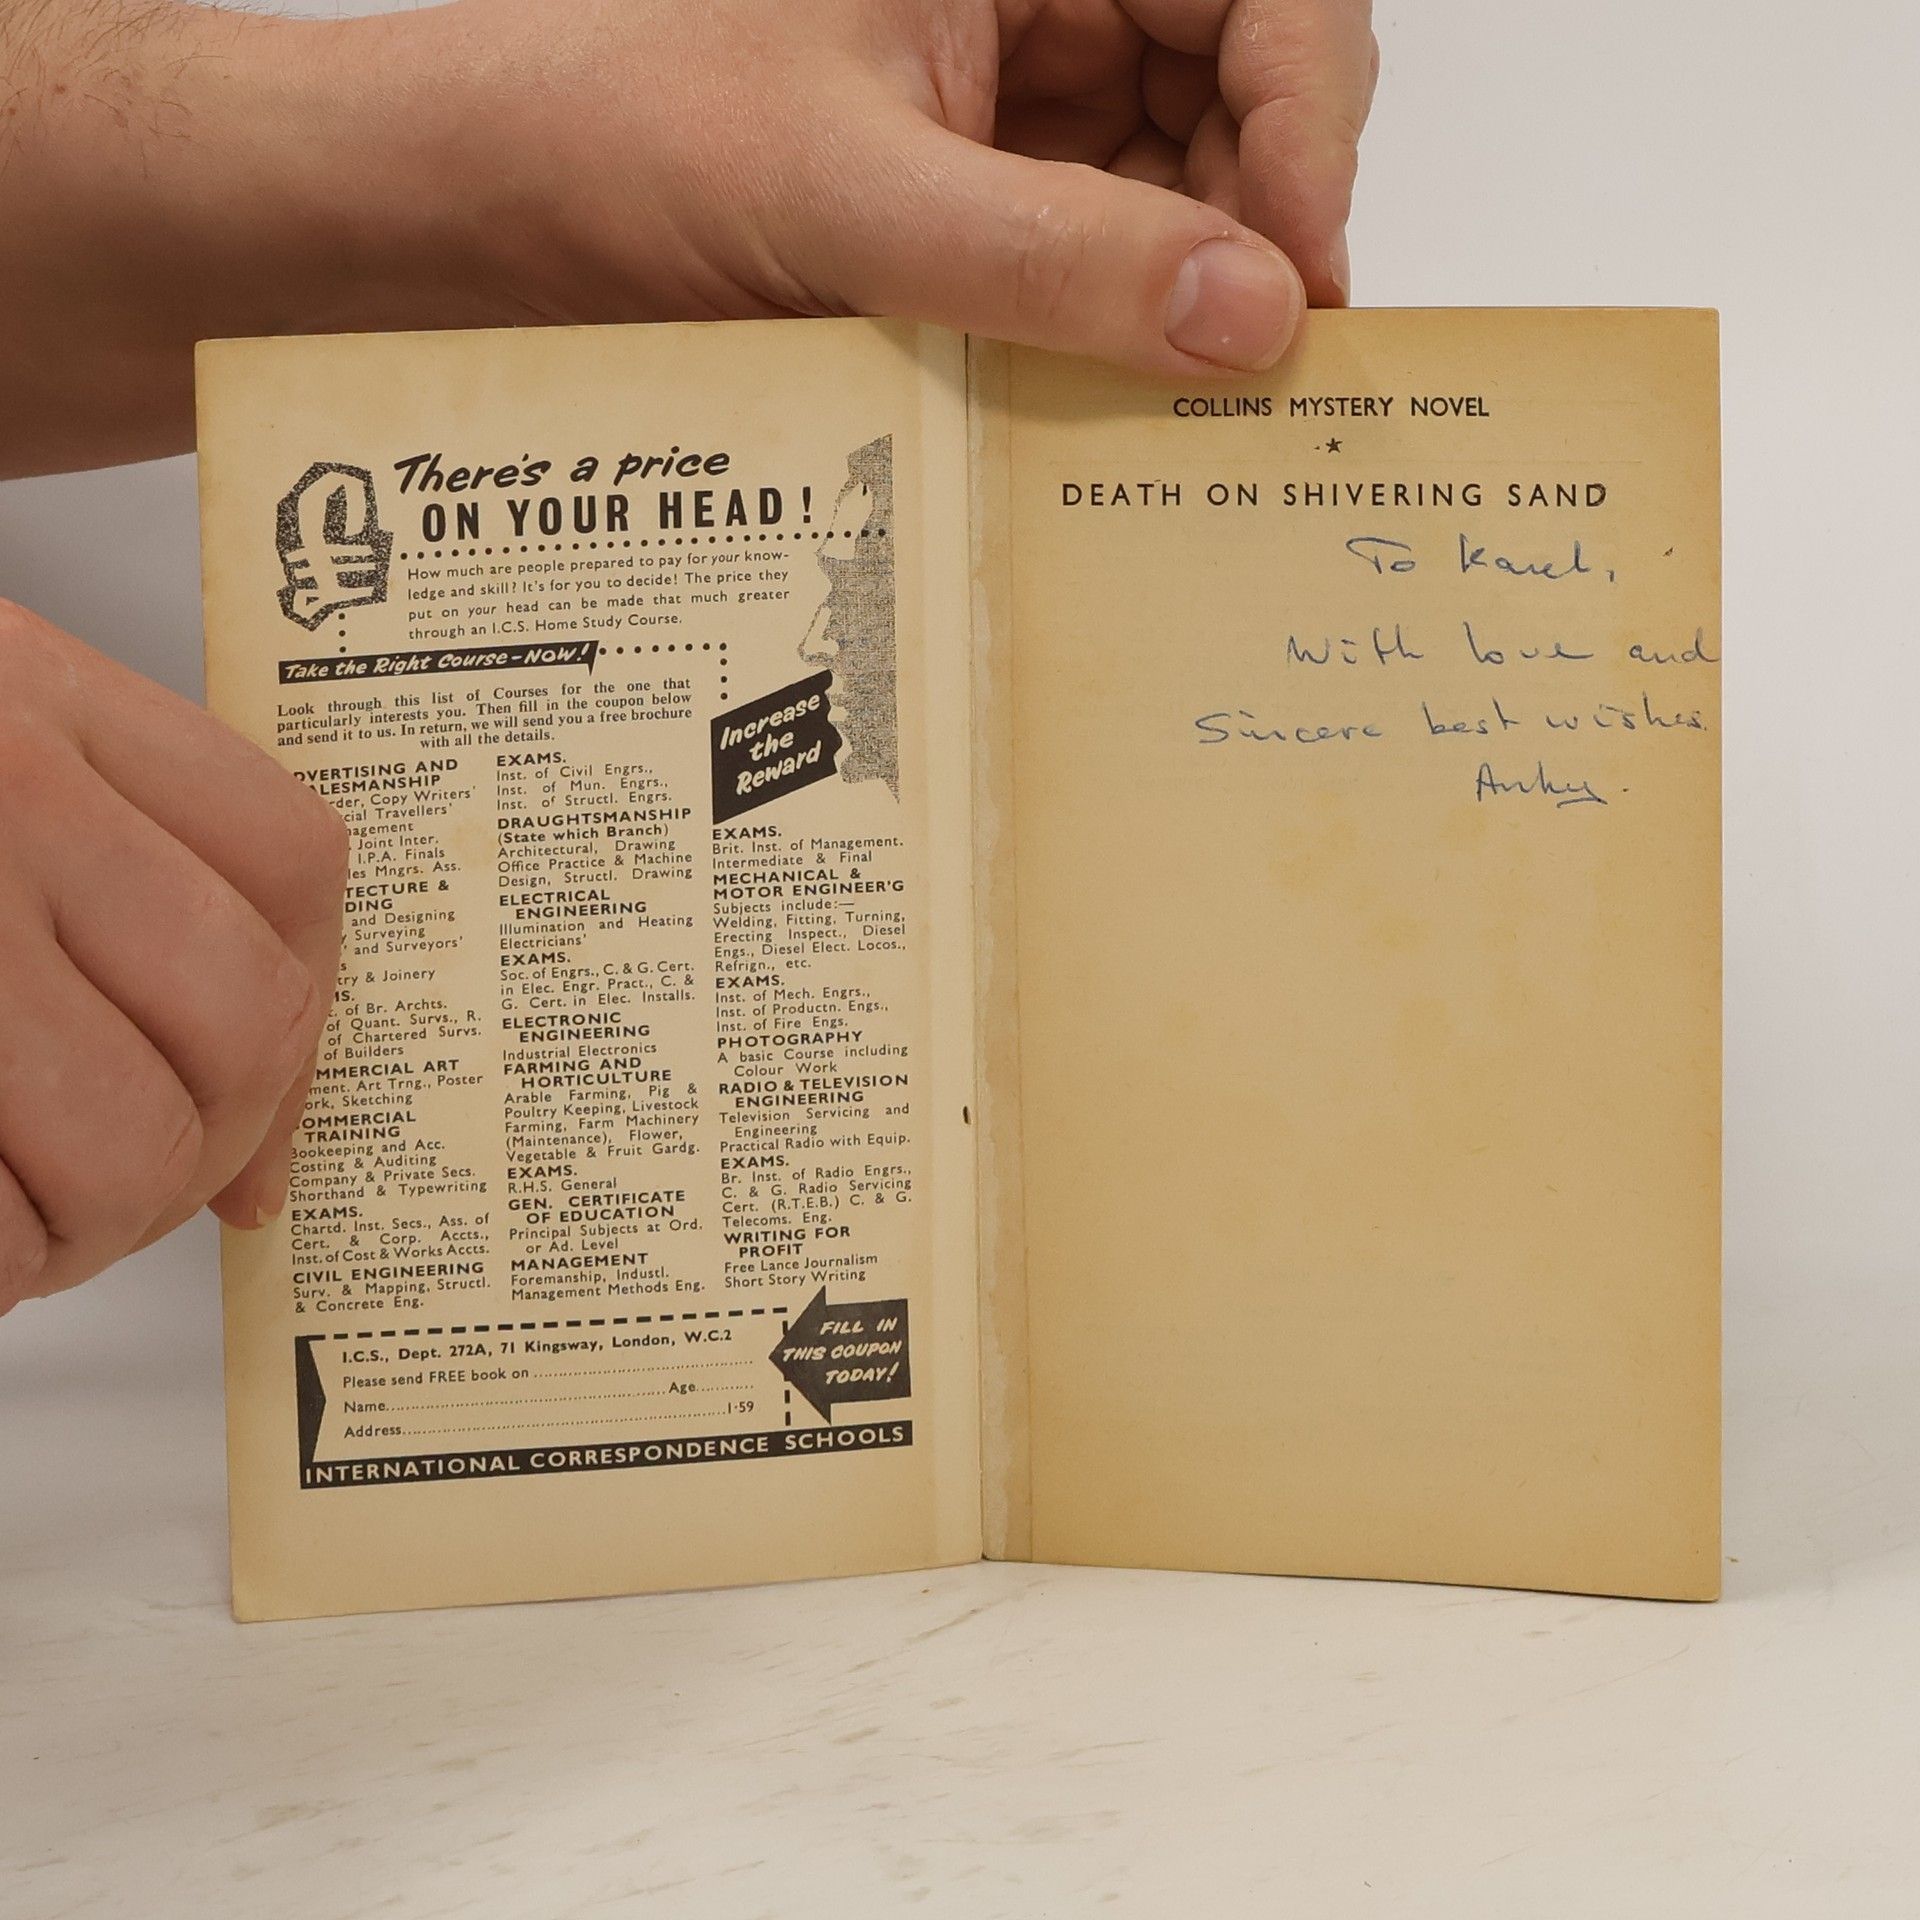 There's a price
ON YOUR HEAD!
How much are people prepared to pay for your know-
ledge and skill? It's for you to decide! The price they
put on your head can be made that much greater
through an I.C.S. Home Study Course.
Take the Right Course-NOW!
Look through this list of Courses for the one that
particularly interests you. Then fill in the coupon below
and send it to us. In return, we will send you a free brochure
with all the details.
Increase
the
Reward
DVERTISING AND
ALESMANSHIP
rder, Copy Writers'
cial Travellers'
nagement
Joint Inter.
I.P.A. Finals
les Mngrs. Ass.
TECTURE &
DING
and Designing
y Surveying
' and Surveyors'
s
try & Joinery
MS.
t. of Br. Archts.
of Quant. Survs., R.
of Chartered Survs.
of Builders
MMERCIAL ART
ment. Art Trng., Poster
ork, Sketching
OMMERCIAL
TRAINING
Bookeeping and Acc.
Costing & Auditing
Company & Private Secs.
Shorthand & Typewriting
EXAMS.
Chartd. Inst. Secs., Ass. of
Cert. & Corp. Accts.,
Inst. of Cost & Works Accts.
CIVIL ENGINEERING
Surv. & Mapping, Structl.
& Concrete Eng.
EXAMS.
Inst. of Civil Engrs.,
Inst. of Mun. Engrs.,
Inst. of Structl. Engrs.
DRAUGHTSMANSHIP
(State which Branch)
Architectural, Drawing
Office Practice & Machine
Design, Structl. Drawing
ELECTRICAL
ENGINEERING
Illumination and Heating
Electricians'
EXAMS.
Soc. of Engrs., C. & G. Cert.
in Elec. Engr. Pract., C. &
G. Cert. in Elec. Installs.
ELECTRONIC
ENGINEERING
Industrial Electronics
FARMING AND
HORTICULTURE
Arable Farming, Pig &
Poultry Keeping, Livestock
Farming, Farm Machinery
(Maintenance), Flower,
Vegetable & Fruit Gardg.
EXAMS.
R.H.S. General
GEN. CERTIFICATE
OF EDUCATION
Principal Subjects at Ord.
or Ad. Level
MANAGEMENT
Foremanship, Industl.
Management Methods Eng.
EXAMS.
Brit. Inst. of Management.
Intermediate & Final
MECHANICAL &
MOTOR ENGINEER'G
Subjects include:—
Welding, Fitting, Turning,
Erecting Inspect., Diesel
Engs., Diesel Elect. Locos.,
Refrign., etc.
EXAMS.
Inst. of Mech. Engrs.,
Inst. of Productn. Engs.,
Inst. of Fire Engs.
PHOTOGRAPHY
A basic Course including
Colour Work
RADIO & TELEVISION
ENGINEERING
Television Servicing and
Engineering
Practical Radio with Equip.
EXAMS.
Br. Inst. of Radio Engrs.,
C. & G. Radio Servicing
Cert. (R.T.E.B.) C. & G.
Telecoms. Eng.
WRITING FOR
PROFIT
Free Lance Journalism
Short Story Writing
I.C.S., Dept. 272A, 71 Kingsway, London, W.C.2
Please send FREE book on
Name Age
Address 1·59
FILL IN
THIS COUPON
TODAY!
INTERNATIONAL CORRESPONDENCE SCHOOLS
COLLINS MYSTERY NOVEL
DEATH ON SHIVERING SAND
To Karel,
With love and
Sincere best wishes.